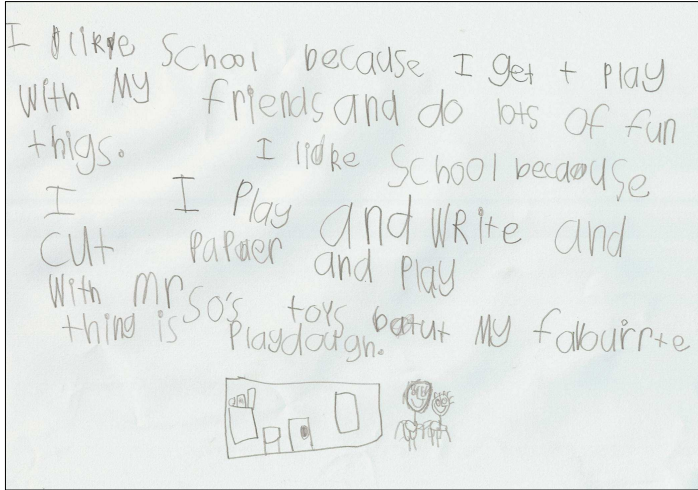 I like School because I get t play
with My friends and do lots of fun
thigs. I like School because
I I Play and WRite and
cut Papaer and play
With Mr So's toys batut My favbuirrte
thing is Playdough.